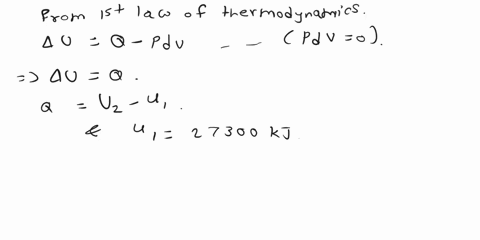 From 1st law of thermodynamics.
ΔU = Q - Pdv - - (Pdv=0).
=> ΔU = Q.
Q = U2 - u1.
& u1 = 27300 kJ